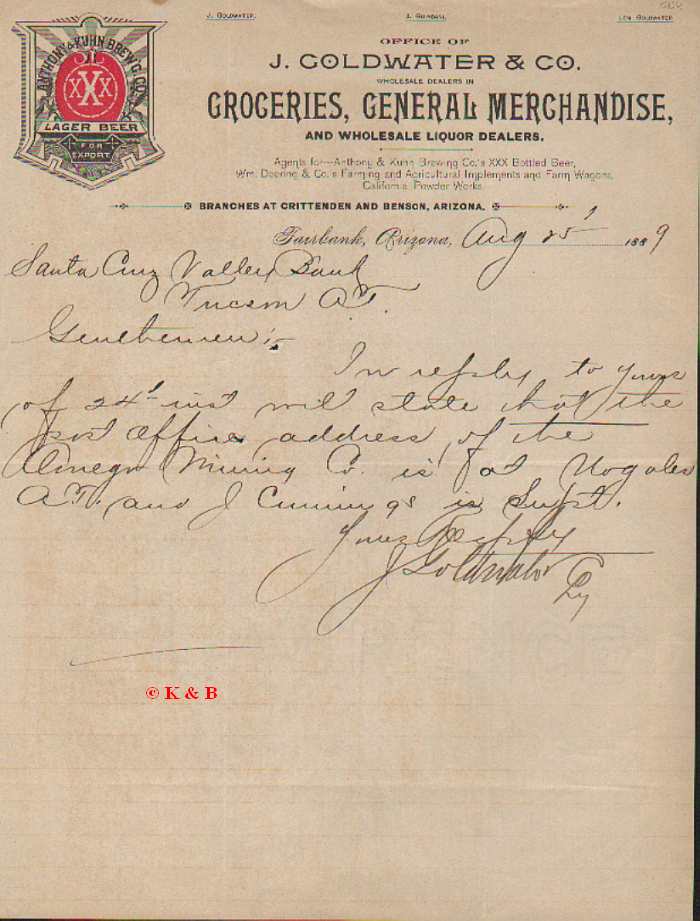 J. GOLDWATER.
LEM. GOLDWATER.
ANTHONY & KUHN BREW'G. CO.
XXX
LAGER BEER
FOR
EXPORT
OFFICE OF
J. GOLDWATER & CO.
WHOLESALE DEALERS IN
GROCERIES, GENERAL MERCHANDISE,
AND WHOLESALE LIQUOR DEALERS.
Agents for—Anthony & Kuhn Brewing Co.'s XXX Bottled Beer,
Wm. Deering & Co.'s Farming and Agricultural Implements and Farm Wagons,
California Powder Works.
BRANCHES AT CRITTENDEN AND BENSON, ARIZONA.
Fairbank, Arizona, Aug 25 1889
Santa Cruz Valley Bank
Tucson A.T.
Gentlemen:-
In reply to yours
of 24 inst will state that the
post office address of the
Mining Co. is at Nogales
A.T. and J Cummings is Supt.
Yours Respfy
J Goldwater Co
© K & B